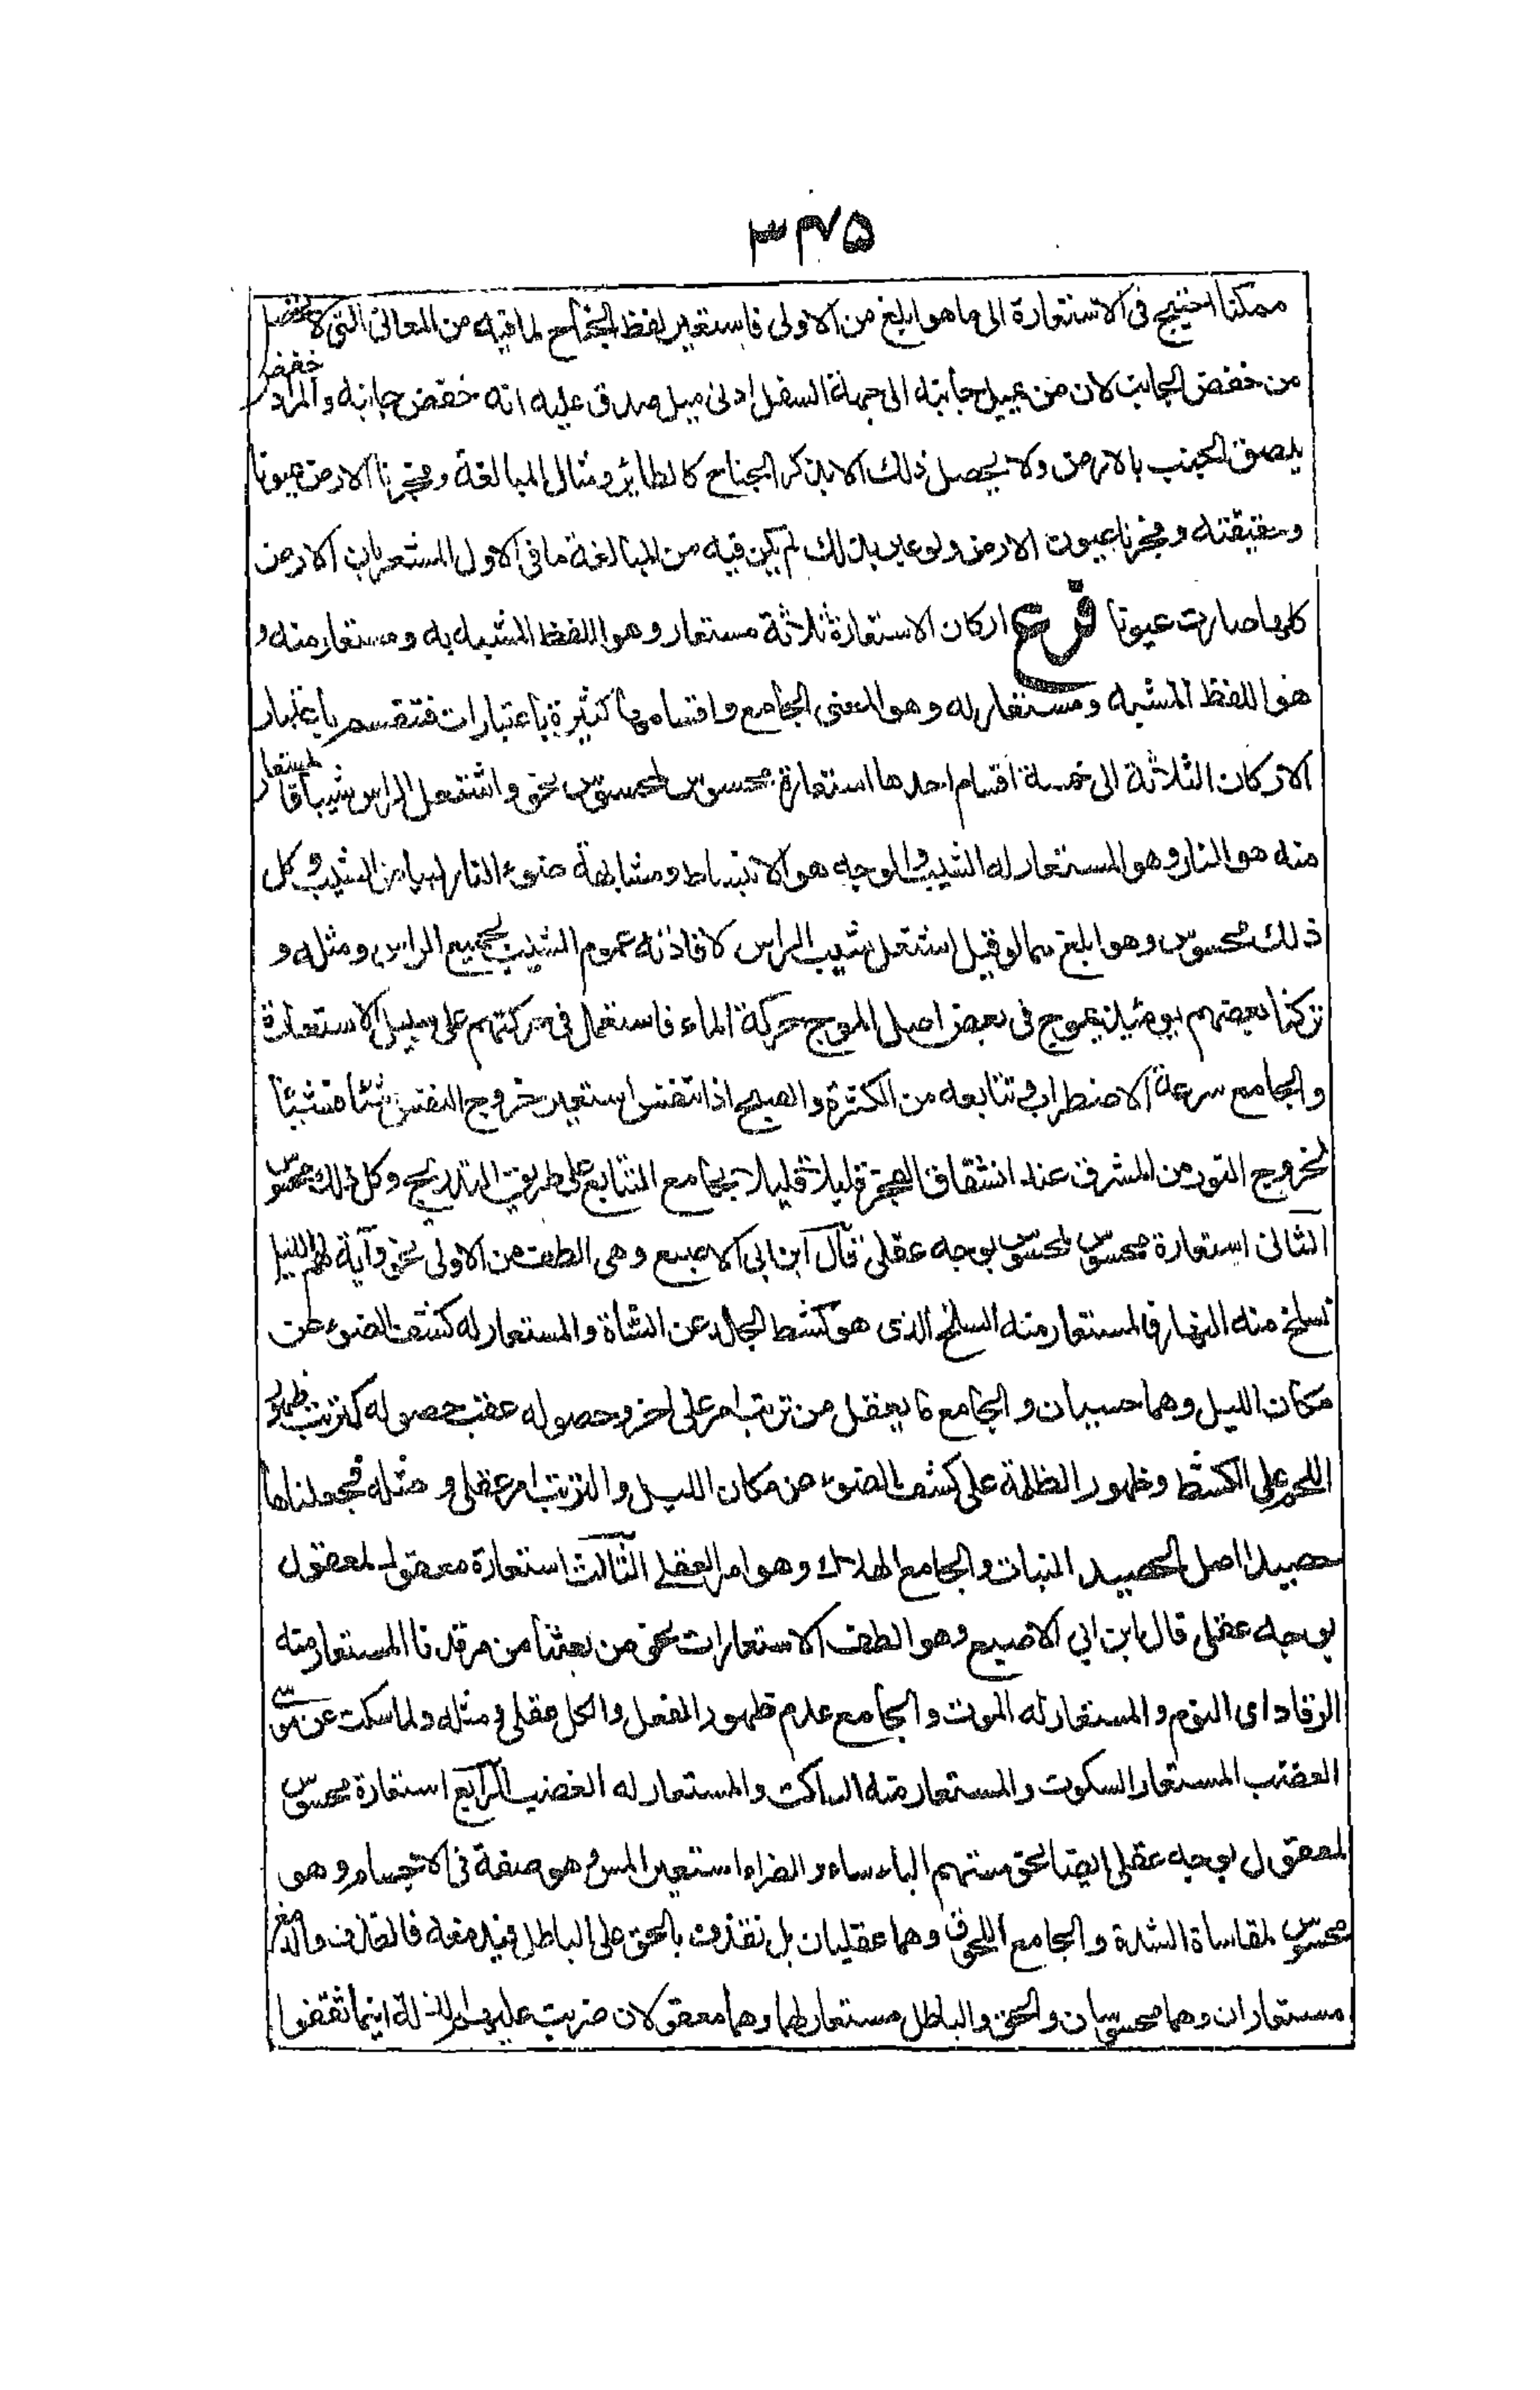 ۳۴۵
ممكنا احتيج فى الاستعارة الى ما هو ابلغ من الاولى فاستعير لفظ الجناح لما فيه من المعانى التى لا تحصل
من خفض الجانب لان من يميل جانبه الى جهة السفل ادنى ميل صدق عليه انه خفض جانبه والمراد خفض
يلصق الجنب بالارض ولا يحصل ذلك الا بذكر الجناح كالطائر ومثال المبالغة وفجرنا الارض عيونا
وحقيقته وفجرنا عيون الارض ولو عبر بذلك لم يكن فيه من المبالغة ما فى الاول المشعر بان الارض
كلها صارت عيونا فرع اركان الاستعارة ثلاثة مستعار وهو اللفظ المشبه به ومستعار منه و
هو اللفظ المشبه ومستعار له وهو المعنى الجامع واقسامها كثيرة باعتبارات فتقسم باعتبار
الاركان الثلاثة الى خمسة اقسام احدها استعارة محسوس لمحسوس نحو واشتعل الراس شيبا فالمستعار
منه هو النار وهو المستعار له الشيب والوجه هو الانبساط ومشابهة ضوء النار لبياض الشيب وكل
ذلك محسوس وهو ابلغ مما لو قيل اشتعل شيب الراس لافادته عموم الشيب لجميع الراس ومثله و
تركنا بعضهم يومئذ يموج فى بعض اصل الموج حركة الماء فاستعمل فى حركتهم على سبيل الاستعارة
والجامع سرعة الاضطراب وتتابعه من الكثرة والصبح اذا تنفس استعير خروج النفس شئا فشيئا
لخروج النور من المشرق عند انشقاق الفجر قليلا قليلا بجامع التتابع على طريق التدريج وكل ذلك محسوس
الثانى استعارة محسوس لمحسوس بوجه عقلى قال ابن ابى الاصبع وهى الطف من الاولى نحو وآية لهم الليل
نسلخ منه النهار فالمستعار منه السلخ الذى هو كشط الجلد عن الشاة والمستعار له كشف الضوء عن
مكان الليل وهما حسيان والجامع ما يعقل من ترتب امر على اخر وحصوله عقب حصوله كترتب ظهور
اللحم على الكشط وظهور الظلمة على كشف الضوء من مكان الليل والترتب امر عقلى ومثله فجعلناها
حصيدا اصل الحصيد النبات والجامع الهلاك وهو امر عقلى الثالث استعارة معقول لمعقول
بوجه عقلى قال ابن ابى الاصبع وهو الطف الاستعارات نحو من بعثنا من مرقدنا المستعار منه
الرقاد اى النوم والمستعار له الموت والجامع عدم ظهور الفعل والكل عقلى ومثله ولما سكت عن موسى
الغضب المستعار السكوت والمستعار منه الساكت والمستعار له الغضب الرابع استعارة محسوس
لمعقول بوجه عقلى ايضا نحو مستهم الباساء والضراء استعير المس وهو صفة فى الاجسام وهو
محسوس لمقاساة الشدة والجامع اللحوق وهما عقليان بل نقذف بالحق على الباطل فيدمغه فالقذف والدمغ
مستعاران وهما محسوسان والحق والباطل مستعار لهما وهما معقولان ضربت عليهم الذلة اينما ثقفوا